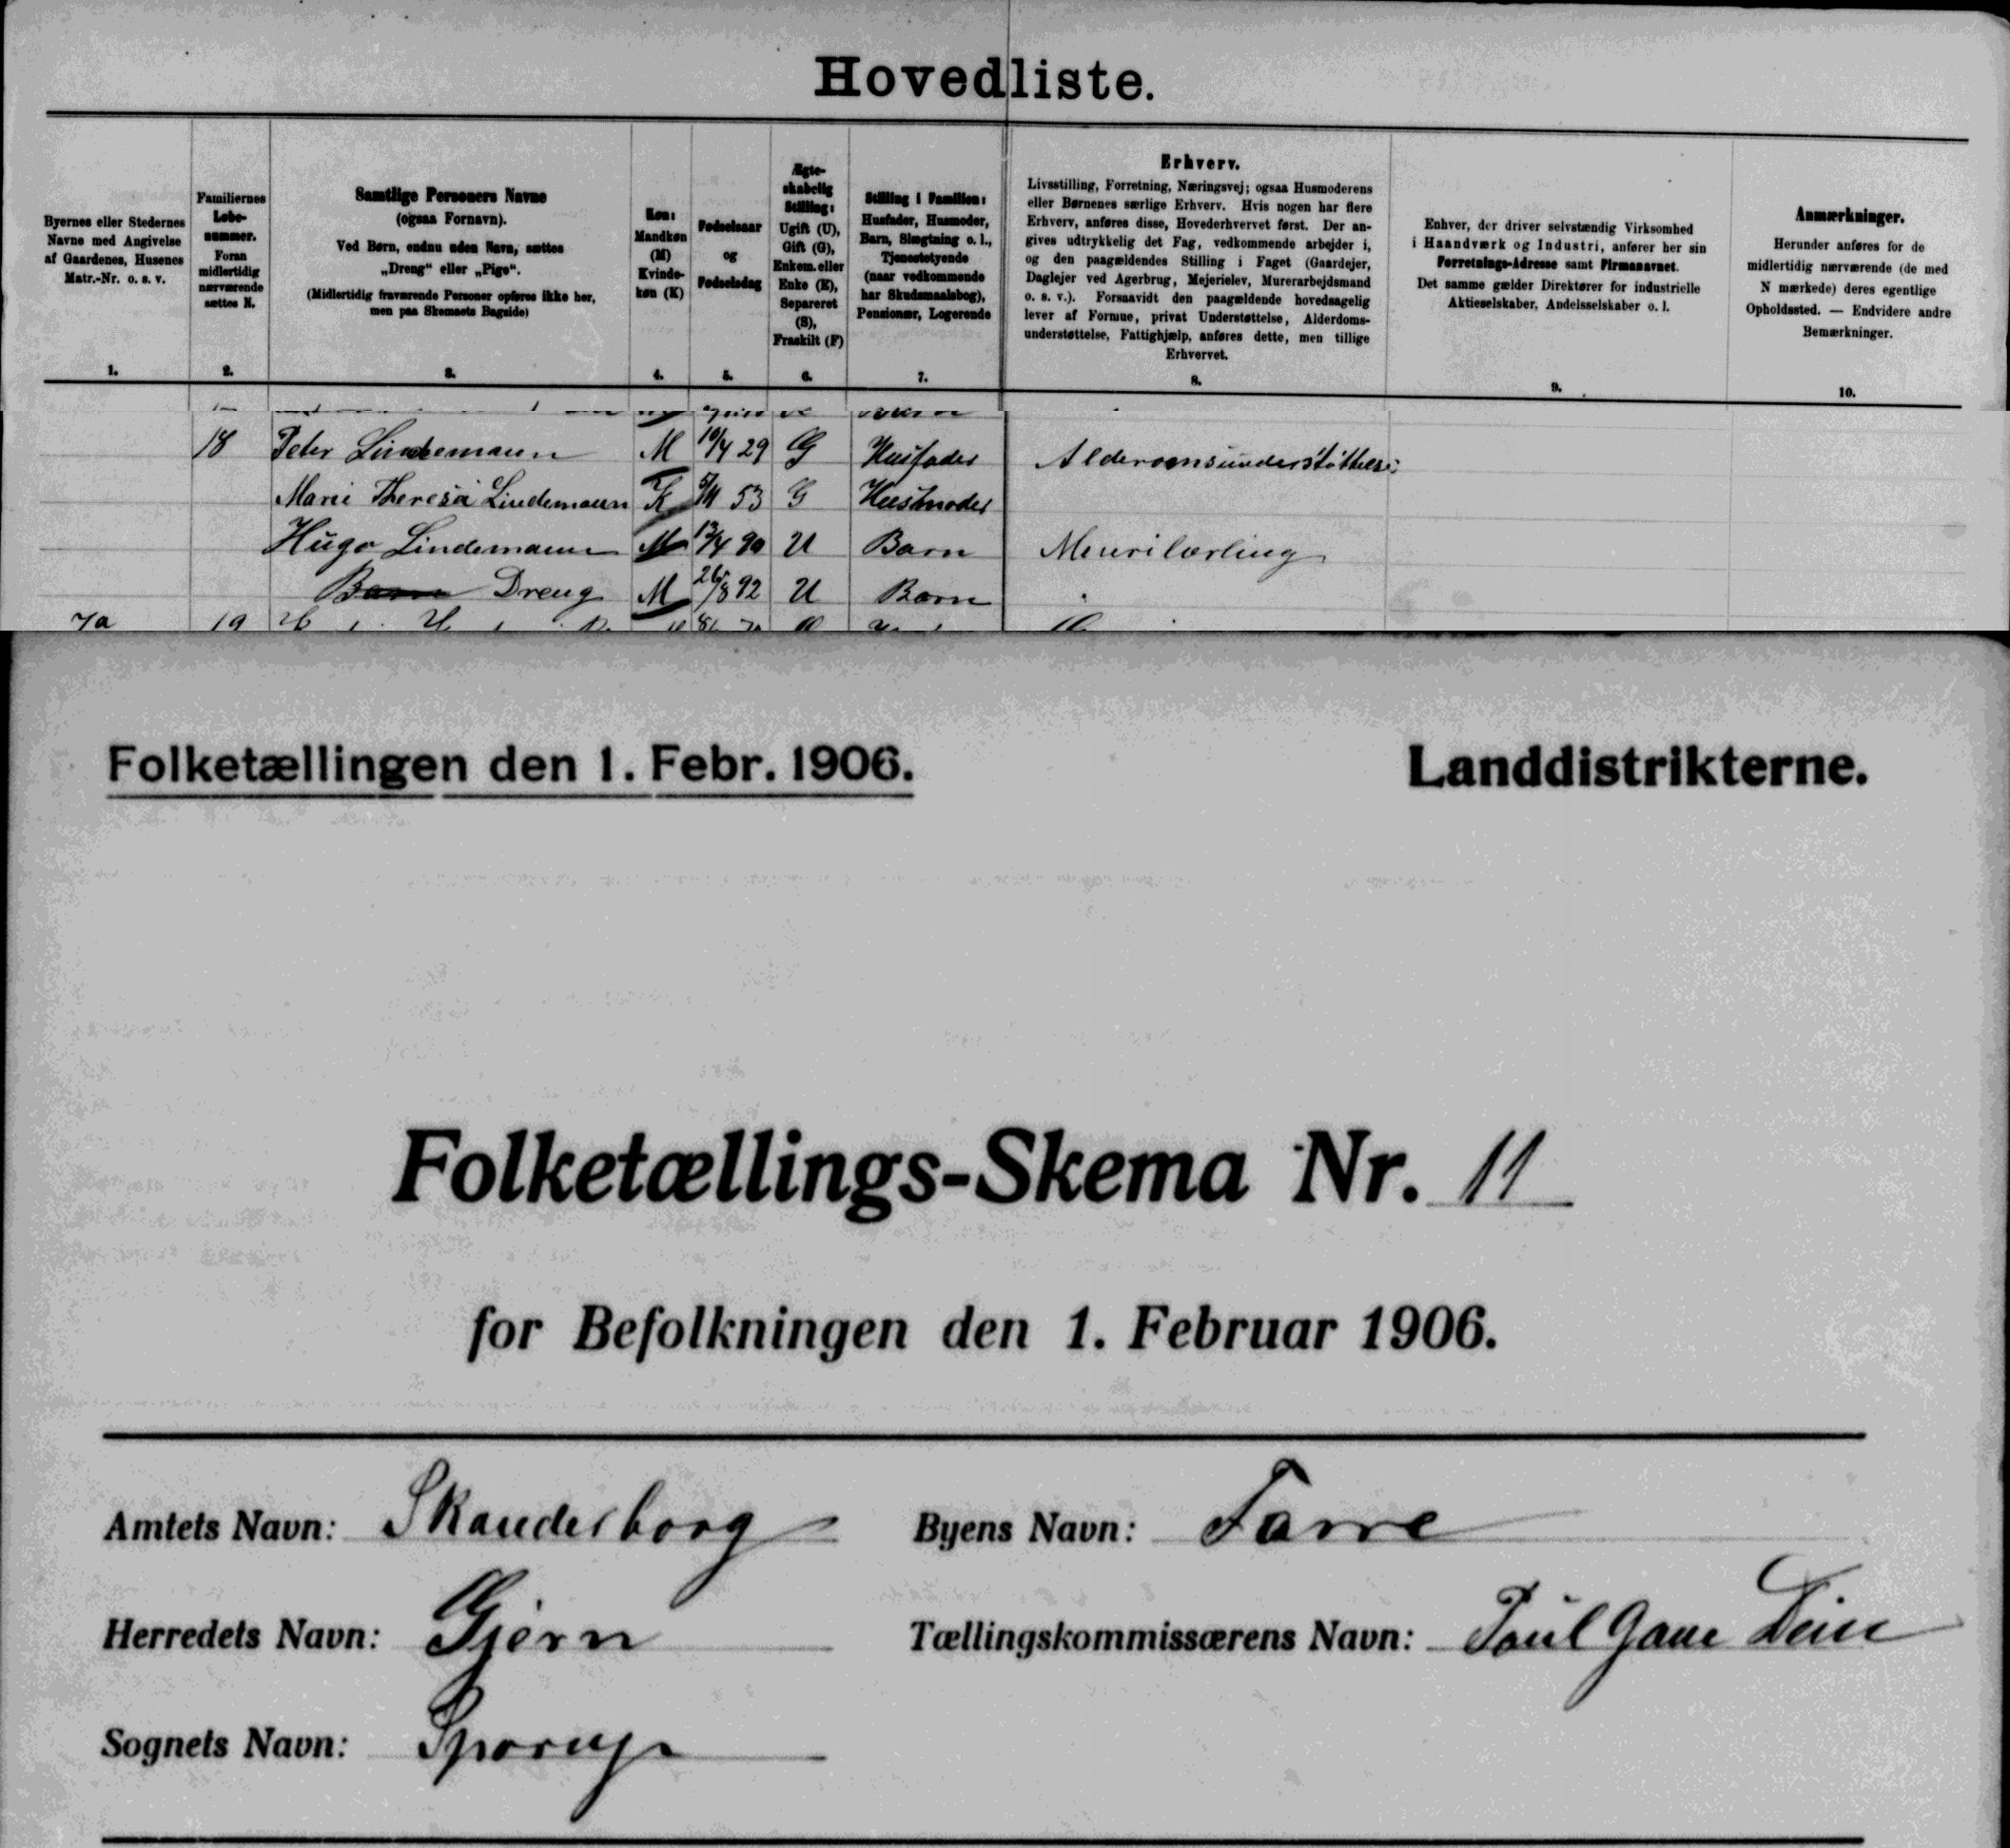 Hovedliste.
Byernes eller Stedernes
Navne med Angivelse
af Gaardenes, Husenes
Matr.-Nr. o. s. v.
1.
Familiernes
Løbe-
nummer.
Foran
midlertidig
nærværende
sættes N.
2.
Samtlige Personers Navne
(ogsaa Fornavn).
Ved Børn, endnu uden Navn, sættes
„Dreng“ eller „Pige“.
(Midlertidig fraværende Personer opføres ikke her,
men paa Skemaets Bagside)
3.
Køn:
Mandkøn
(M)
Kvinde-
køn (K)
4.
Fødselsaar
og
Fødselsdag
5.
Ægte-
skabelig
Stilling:
Ugift (U),
Gift (G),
Enkem. eller
Enke (E),
Separeret
(S),
Fraskilt (F)
6.
Stilling i Familien:
Husfader, Husmoder,
Barn, Slægtning o. l.,
Tjenestetyende
(naar vedkommende
har Skudsmaalsbog),
Pensionær, Logerende
7.
Erhverv.
Livsstilling, Forretning, Næringsvej; ogsaa Husmoderens
eller Børnenes særlige Erhverv. Hvis nogen har flere
Erhverv, anføres disse, Hovederhvervet først. Der an-
gives udtrykkelig det Fag, vedkommende arbejder i,
og den paagældendes Stilling i Faget (Gaardejer,
Daglejer ved Agerbrug, Mejerielev, Murerarbejdsmand
o. s. v.). Forsaavidt den paagældende hovedsagelig
lever af Formue, privat Understøttelse, Alderdoms-
understøttelse, Fattighjælp, anføres dette, men tillige
Erhvervet.
8.
Enhver, der driver selvstændig Virksomhed
i Haandværk og Industri, anfører her sin
Forretnings-Adresse samt Firmanavnet.
Det samme gælder Direktører for industrielle
Aktieselskaber, Andelsselskaber o. l.
9.
Anmærkninger.
Herunder anføres for de
midlertidig nærværende (de med
N mærkede) deres egentlige
Opholdssted. — Endvidere andre
Bemærkninger.
10.
18 Peter Lindemann M 10/4 29 G Husfader Alderomsunderstöttelse
Marie Theresia Lindemann K 53 G Husmoder
Hugo Lindemann M 13/4 90 U Barn Meurilærling
Barn Dreng M 26/8 92 U Barn
7a 19
Folketællingen den 1. Febr. 1906.
Landdistrikterne.
Folketællings-Skema Nr. 11
for Befolkningen den 1. Februar 1906.
Amtets Navn: Skanderborg
Byens Navn: Farre
Herredets Navn: Gjern
Tællingskommissærens Navn: Poul
Sognets Navn: Sporup